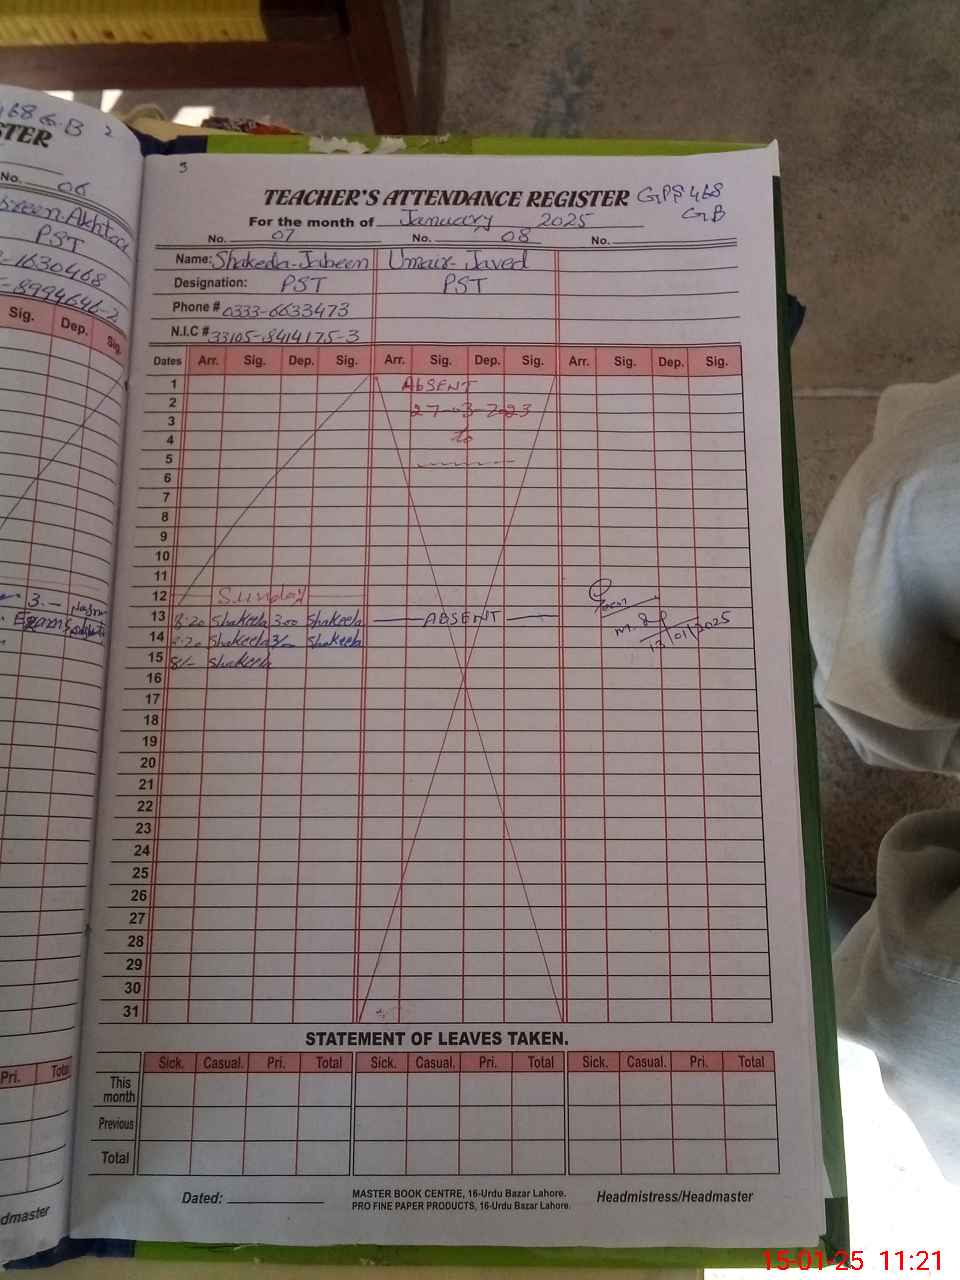 468 G.B 2
STER
No. 06
PST
Sig. Dep. Sig.
3.-
Exams
Pri. Total
dmaster
3
TEACHER'S ATTENDANCE REGISTER GPS 468
GB
For the month of January 2025
No. 07 No. 08 No.
Name: Shakeela Jabeen Umair Javed
Designation: PST PST
Phone # 0333-6633473
N.I.C # 33105-8414175-3
Dates Arr. Sig. Dep. Sig. Arr. Sig. Dep. Sig. Arr. Sig. Dep. Sig.
1 AbSENT
2 27-03-2023
3
4 to
5
6
7
8
9
10
11
12 Sunday
13 8:20 Shakeela 3:00 Shakeela ABSENT
13/01/2025
14 8:20 Shakeela 3/- Shakeela
15 8/- Shakeela
16
17
18
19
20
21
22
23
24
25
26
27
28
29
30
31
STATEMENT OF LEAVES TAKEN.
Sick. Casual. Pri. Total Sick. Casual. Pri. Total Sick. Casual. Pri. Total
This month
Previous
Total
Dated: MASTER BOOK CENTRE, 16-Urdu Bazar Lahore. Headmistress/Headmaster
PRO FINE PAPER PRODUCTS, 16-Urdu Bazar Lahore.
15-01-25 11:21